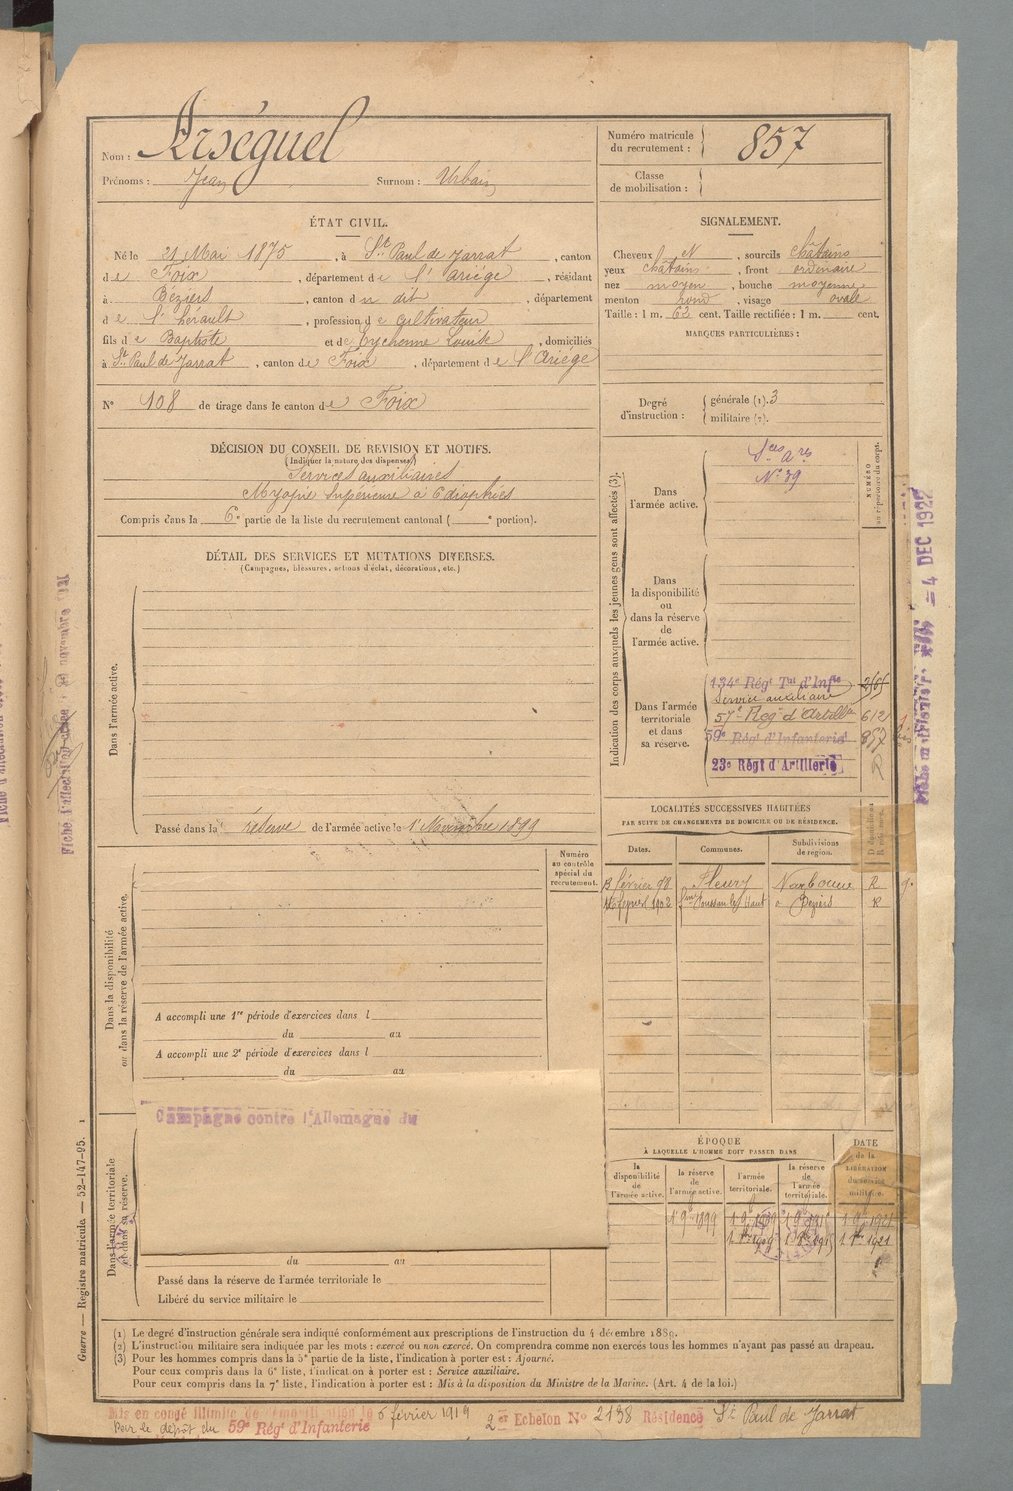 Nom : Arséguel
Prénoms : Jean Surnom : Urbain
Numéro matricule du recrutement : 857
Classe de mobilisation :
ÉTAT CIVIL.
Né le 21 Mai 1875, à St Paul de Jarrat, canton
de Foix, département de l'Ariège, résidant
à Béziers, canton du dit, département
de l'hérault, profession de Cultivateur
fils de Baptiste et de Eychenne Louise, domiciliés
à St Paul de Jarrat, canton de Foix, département de l'Ariége
N° 108 de tirage dans le canton de Foix
SIGNALEMENT.
Cheveux N, sourcils châtains
yeux châtains, front ordinaire
nez moyen, bouche moyenne
menton rond, visage ovale
Taille : 1 m. 62 cent. Taille rectifiée : 1 m. cent.
MARQUES PARTICULIÈRES :
Degré d'instruction : générale (1). 3
militaire (2).
DÉCISION DU CONSEIL DE REVISION ET MOTIFS.
(Indiquer la nature des dispenses.)
Services auxiliaires
Myopie Supérieure à 6 dioptries
Compris dans la 6e partie de la liste du recrutement cantonal ( e portion).
DÉTAIL DES SERVICES ET MUTATIONS DIVERSES.
(Campagnes, blessures, actions d'éclat, décorations, etc.)
Dans l'armée active.
Passé dans la réserve de l'armée active le 1er Novembre 1899
Indication des corps auxquels les jeunes gens sont affectés (3).
NUMÉRO au répertoire du corps.
Dans l'armée active.
Sces Ares
N° 39
Dans la disponibilité ou dans la réserve de l'armée active.
Dans l'armée territoriale et dans sa réserve.
134e Régt Tal d'Infie
Service auxiliaire
57e Regt d'Artillie 612
59e Régt d'Infanterie 857
23e Régt d'Artillerie
LOCALITÉS SUCCESSIVES HABITÉES
PAR SUITE DE CHANGEMENTS DE DOMICILE OU DE RÉSIDENCE.
Dates. Communes. Subdivisions de région.
13 février 98 Fleury Narbonne R
1902 Béziers R
Numéro au contrôle spécial du recrutement.
Dans la disponibilité ou dans la réserve de l'armée active.
A accompli une 1re période d'exercices dans l
du au
A accompli une 2e période d'exercices dans l
du au
Campagne contre l'Allemagne du
Dans l'armée territoriale et dans sa réserve.
du au
Passé dans la réserve de l'armée territoriale le
Libéré du service militaire le
ÉPOQUE
À LAQUELLE L'HOMME DOIT PASSER DANS
la disponibilité de l'armée active. la réserve de l'armée active. l'armée territoriale. la réserve de l'armée territoriale.
DATE de la LIBÉRATION du service militaire.
1 9bre 1899 1 9bre 1909 1 9bre 1915 1 9bre 1921
1 8bre 1909 1 8bre 1915 1 8bre 1921
(1) Le degré d'instruction générale sera indiqué conformément aux prescriptions de l'instruction du 4 décembre 1889.
(2) L'instruction militaire sera indiquée par les mots : exercé ou non exercé. On comprendra comme non exercés tous les hommes n'ayant pas passé au drapeau.
(3) Pour les hommes compris dans la 5e partie de la liste, l'indication à porter est : Ajourné.
Pour ceux compris dans la 6e liste, l'indication à porter est : Service auxiliaire.
Pour ceux compris dans la 7e liste, l'indication à porter est : Mis à la disposition du Ministre de la Marine. (Art. 4 de la loi.)
Mis en congé illimité de démobilisation le 6 février 1919
Par le dépôt du 59e Régt d'Infanterie
2er Echelon N° 2138 Résidence St Paul de Jarrat
Guerre — Registre matricule. — 52-147-95. 1
= 4 DEC 1922